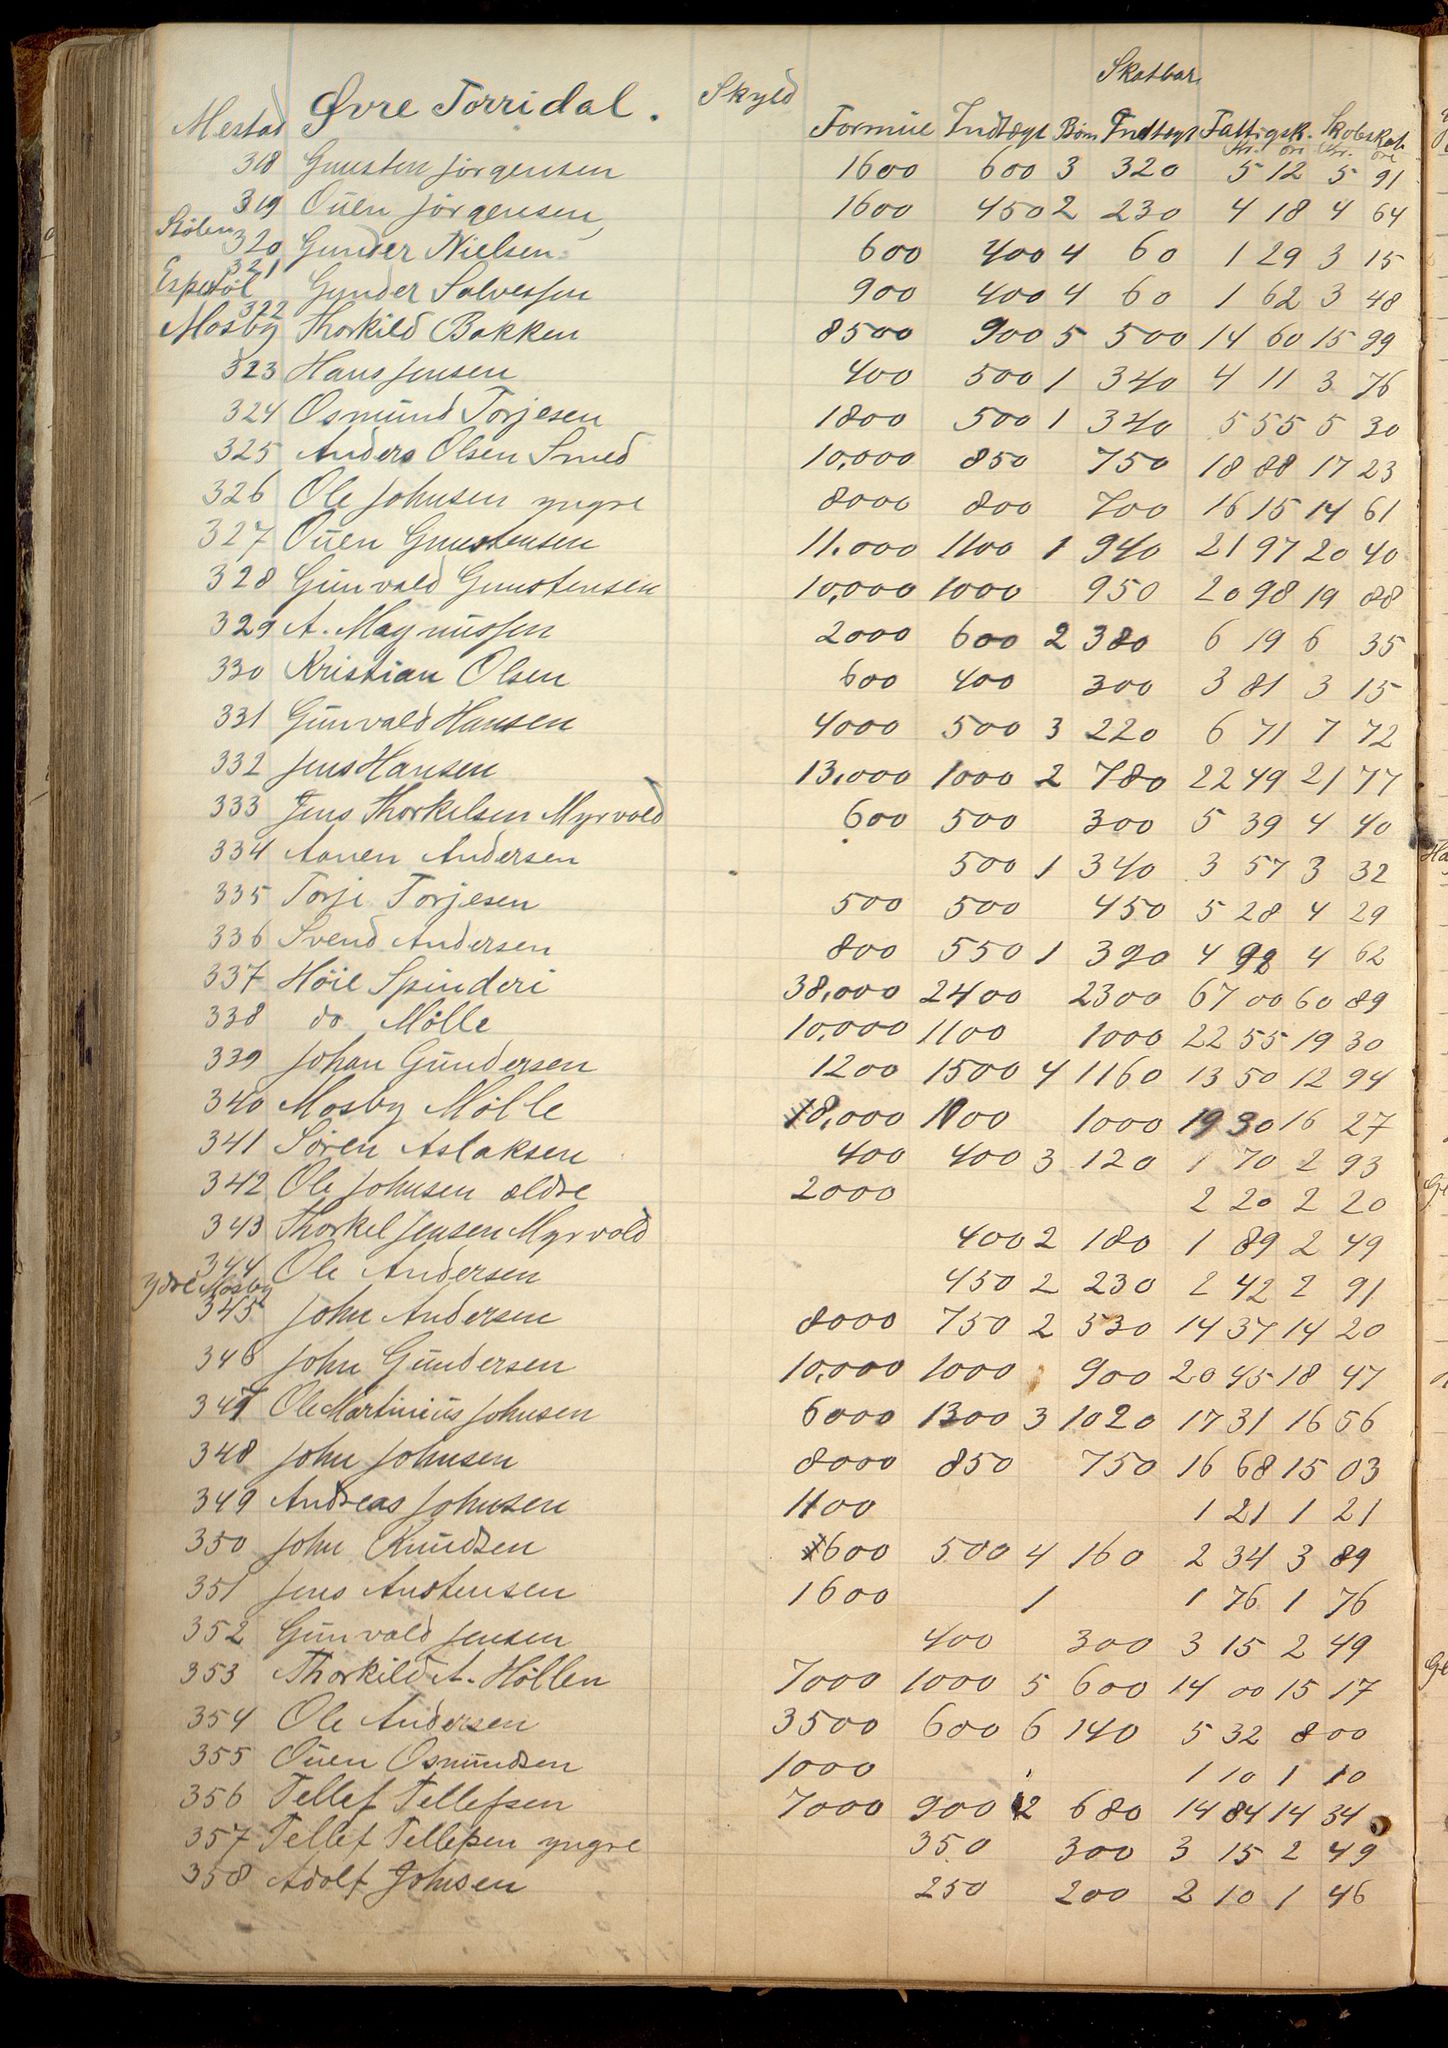 Skatbar
Mestad Øvre Torridal. Skyld Formue Indtægt Børn Indtægt Fattigsk. Skoleskat
Kr. öri Kr. öre
318 Gunsten Jörgensen 1600 600 3 320 5 12 5 91
319 Ouen Jörgensen 1600 450 2 230 4 18 4 64
Stölen
320 Gunder Nielsen 600 400 4 60 1 29 3 15
Espestöl 321 Gunder Salvessen 900 400 4 60 1 62 3 48
Mosby 322 Thorkild Bakken 8500 900 5 500 14 60 15 99
323 Hans Jensen 400 500 1 340 4 11 3 76
324 Osmund Torjesen 1800 500 1 340 5 55 5 30
325 Anders Olsen Smed 10,000 850 750 18 88 17 23
326 Ole Johnsen yngre 8000 800 700 16 15 14 61
327 Ouen Gunstensen 11.000 1100 1 940 21 97 20 40
328 Gunvald Gunstensen 10,000 1000 950 20 98 19 88
329 A. Magnussen 2000 600 2 380 6 19 6 35
330 Kristian Olsen 600 400 300 3 81 3 15
331 Gunvald Hansen 4000 500 3 220 6 71 7 72
332 Jens Hansen 13,000 1000 2 780 22 49 21 77
333 Jens Thorkelsen Myrvold 600 500 300 5 39 4 40
334 Aanen Andersen 500 1 340 3 57 3 32
335 Torje Torjesen 500 500 450 5 28 4 29
336 Svend Andersen 800 550 1 390 4 92 4 62
337 Höie Spinderi 38,000 2400 2300 67 00 60 89
338 do Mölle 10,000 1100 1000 22 55 19 30
339 Johan Gundersen 1200 1500 4 1160 13 50 12 94
340 Mosby Mölle 8,000 1100 1000 19 30 16 27
341 Sören Aslaksen 400 400 3 120 1 70 2 93
342 Ole Johnsen ældre 2000 2 20 2 20
343 Thorkel Jensen Myrvold 400 2 180 1 89 2 49
344 Ole Andersen 450 2 230 2 42 2 91
Ydre Mosby
345 John Andersen 8000 750 2 530 14 37 14 20
346 John Gundersen 10,000 1000 900 20 45 18 47
347 Ole Martinius Johnsen 6000 1300 3 1020 17 31 16 56
348 John Johnsen 8000 850 750 16 68 15 03
349 Andreas Johnsen 1100 1 21 1 21
350 John Knudsen 600 500 4 160 2 34 3 89
351 Jens Austensen 1600 1 1 76 1 76
352 Gunvald Jensen 400 300 3 15 2 49
353 Thorkild A. Höllen 7000 1000 5 600 14 00 15 17
354 Ole Andersen 3500 600 6 140 5 32 8 00
355 Ouen Osmundsen 1000 1 10 1 10
356 Tellef Tellefsen 7000 900 2 680 14 84 14 34
357 Tellef Tellefsen yngre 350 300 3 15 2 49
358 Adolf Johnsen 250 200 2 10 1 46